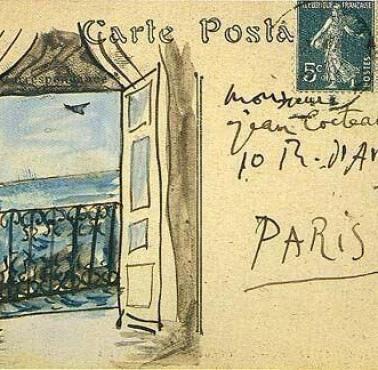 Carte Posta
RÉPUBLIQUE FRANÇAISE
POSTES
5c
Monsieur
Jean Cocteau
10 R. d'An
PARIS